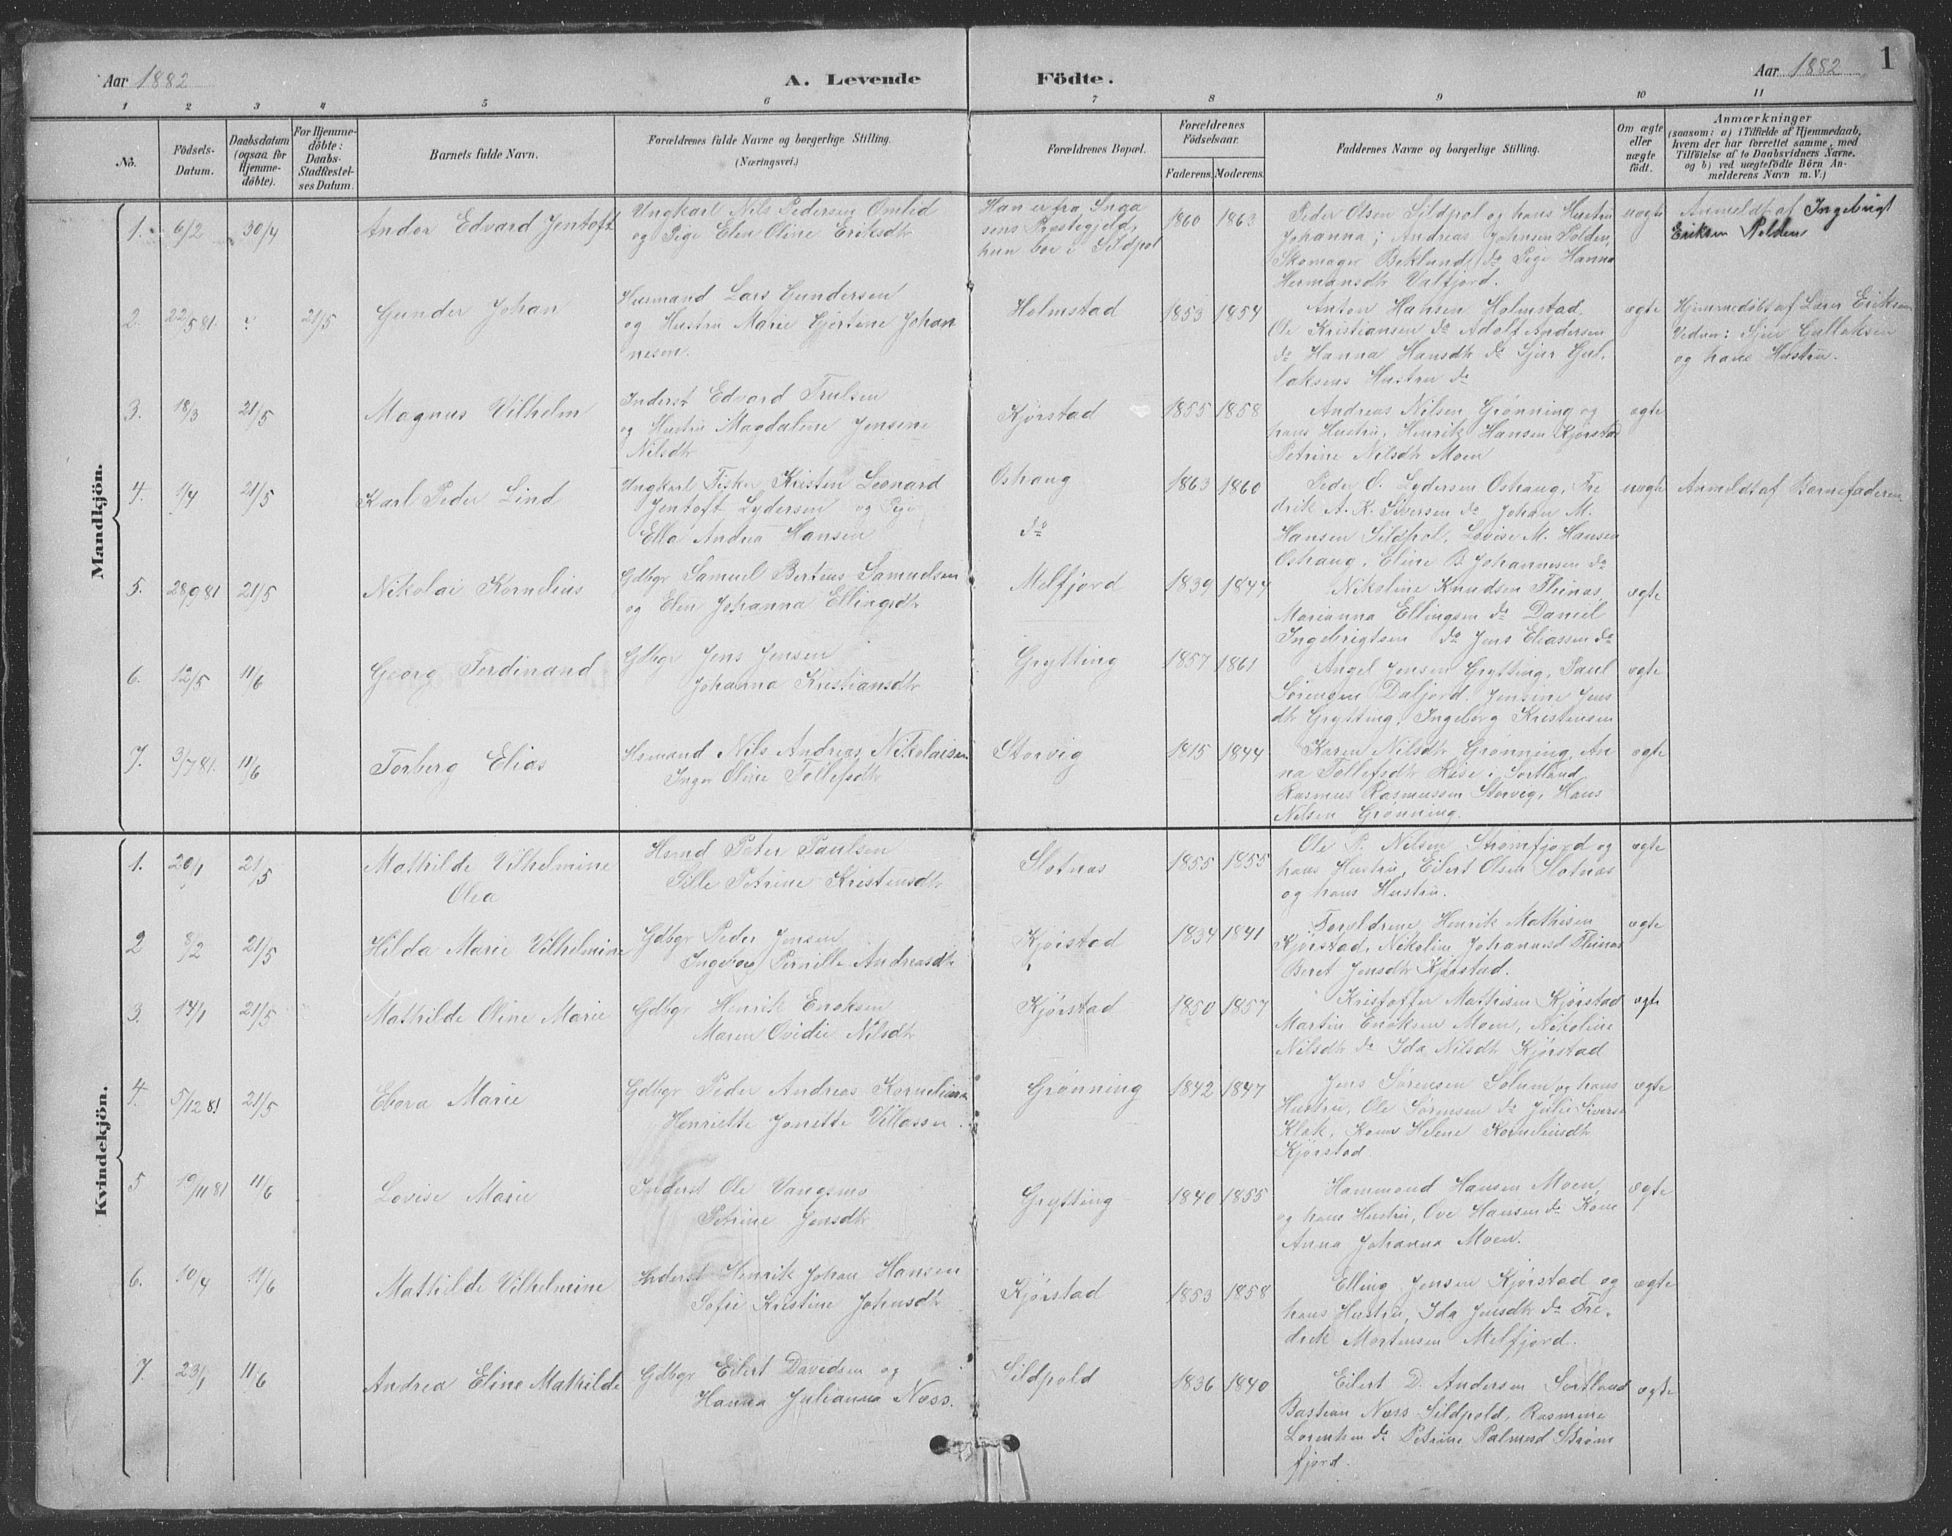 Aar 1882
A. Levende Födte.
Aar 1882
1
1 2 3 4 5 6 7 8 9 10 11
No.
Födsels-
Datum.
Daabsdatum
(ogsaa for
Hjemme-
döbte).
For Hjemme-
döbte:
Daabs-
Stadfæstel-
ses Datum.
Barnets fulde Navn.
Forældrenes fulde Navne og borgerlige Stilling.
(Næringsvei.)
Forældrenes Bopæl.
Forældrenes
Födselsaar.
Faderens. Moderens.
Faddernes Navne og borgerlige Stilling.
Om ægte
eller
uægte
födt.
Anmærkninger
(saasom: a) i Tilfælde af Hjemmedaab,
hvem der har forrettet samme, med
Tilföielse af to Daabsvidners Navne.
og b) ved uægtefödte Börn An-
melderens Navn m. V.)
Mandkjön.
1. 6/2 30/4
Andor Edvard Jentoft
Ungkarl Nils Pedersen Omlid
og Pige Elen Oline Eriksdtr
Han er fra Inga
sens Præstegjeld,
hun bor i Sildpol
1860 1863
Peder Olsen Sildpol og hans Hustru
Johanna; Andreas Johnsen Polden,
Skomager Beklund do Pige Hanna
Hermansdtr Valfjord.
uægte
Anmeldt af Ingebrigt
Eriksen Polden
2. 22/5 81 " 21/5
Gunder Johan
Huusmand Lars Gundersen
og Hustru Marie Gjertine Johan
nesen.
Holmstad
1853 1854
Anton Hansen Holmstad,
Ole Kristiansen do Adolf Andersen
do Hanna Hansdtr do Sjur Gul-
laksens Hustru do
ægte
Hjemmedøbt af Lærer Eriksen
Vidner: Sjur Gullaksen
og hans Hustru.
3. 18/3 21/5
Magnus Vilhelm
Inderst Edvard Trulsen
og Hustru Magdalene Jensine
Nilsdtr
Kjørstad
1855 1858
Andreas Nilsen Grønning og
hans Hustru, Henrik Hansen Kjørstad
Petrine Nilsdtr Moen
ægte
4. 1/4 21/5
Karl Peder Lind
Ungkarl Fisker Kristen Leonard
Jentoft Lydersen og Pige
Ella Andrea Hansen
Oshaug
do
1863 1860
Peder O. Lydersen Oshaug, Fre
drik A. K. Siversen do Johan M.
Hansen Sildpol, Lovise M. Hansen
Oshaug, Eline B. Johannesen do
uægte
Anmeldt af Barnefaderen
5. 28/9 81 21/5
Nikolai Kornelius
Gdbgr Samuel Berteus Samuelsen
og Elen Johanna Ellingsdtr
Melfjord
1839 1844
Nikoline Knudsen Thinæs,
Marianna Ellingsen do Daniel
Ingebrigtsen do Jens Eliassen do
ægte
6. 12/5 11/6
Georg Ferdinand
Gdbgr Jens Jensen
Johanna Kristiansdtr
Grytting
1857 1861
Angel Jensen Grytting, Paul
Sørensen Dalfjord. Jensine Jens
dtr Grytting, Ingeborg Kristensen
ægte
7. 3/7 81 11/6
Torberg Elias
Hsmand Nils Andreas Nikolaisen
Inger Oline Tollefsdtr
Storvig
1815 1844
Karen Nilsdtr Grønning, An
na Tollefsdtr Rise i Sortland
Rasmus Rasmussen Storvig, Hans
Nilsen Grønning.
ægte
Kvindekjön.
1. 20/1 21/5
Mathilde Vilhelmine
Olea
Hsmd Peter Paulsen
Sille Petrine Kristensdtr
Slotnæs
1855 1855
Ole P. Nilsen Strømfjord og
hans Hustru, Eilert Olsen Slotnæs
og hans Hustru.
ægte
2 8/2 21/5
Hilda Marie Vilhelmine
Gdbgr Peder Jensen
Ingeborg Pernille Andreasdtr
Kjørstad
1834 1841
Forældrene, Henrik Mathisen
Kjørstad, Nikoline Johannesd Thinæs
Beret Jensdtr Kjørstad.
ægte
3. 14/1 21/5
Mathilde Oline Marie
Gdbgr Henrik Enoksen
Maren Ovidie Nilsdtr
Kjørstad
1850 1857
Kristoffer Mathisen Kjørstad
Martin Enoksen Moen, Nikoline
Nilsdtr do Ida Nilsdtr Kjørstad
ægte
4. 5/12 81 21/5
Ebora Marie
Gdbgr Peder Andreas Korneliusen
Henriette Jonette Villassen
Grønning
1842 1847
Jens Sørensen Solum og hans
Hustru, Ole Sørensen do Julie Sivers
Klok, Kone Helene Korneliusdtr
Kjørstad
ægte
5 19/11 81 11/6
Lovise Marie
Inderst Ole Vangsmo
Petrine Jensdtr
Grytting
1840 1855
Hammond Hansen Moen,
og hans Hustru, Ove Hansen do Kone
Anna Johanna Moen.
ægte
6. 10/4 11/6
Mathilde Vilhelmine
Inderst Henrik Johan Hansen
Sofie Kristine Johnsdtr
Kjørstad
1853 1858
Elling Jensen Kjørstad og
hans Hustru, Ida Jensdtr do Fre-
drik Mortensen Melfjord.
ægte
7. 23/1 11/6
Andrea Eline Mathilde
Gdbgr Eilert Davidsen og
Hanna Julianna Næss.
Sildpold
1836 1840
Eilert D. Andersen Sortland
Bastian Næss Sildpold, Rasmine
Lorentsen do Petrine Palmesd Strøm
fjord.
ægte